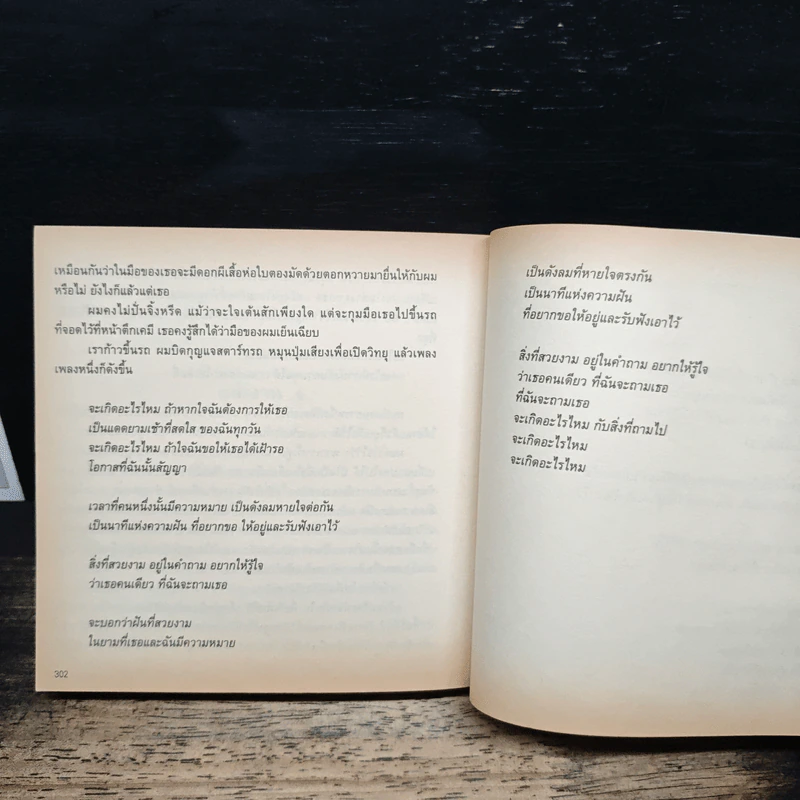 เหมือนกันว่าในมือของเธอจะมีดอกผีเสื้อห่อใบตองมัดด้วยตอกหวายมายื่นให้กับผม
หรือไม่ ยังไงก็แล้วแต่เธอ
ผมคงไม่ปั่นจิ้งหรีด แม้ว่าจะใจเต้นสักเพียงใด แต่จะกุมมือเธอไปขึ้นรถ
ที่จอดไว้ที่หน้าตึกเคมี เธอคงรู้สึกได้ว่ามือของผมเย็นเฉียบ
เราก้าวขึ้นรถ ผมบิดกุญแจสตาร์ทรถ หมุนปุ่มเสียงเพื่อเปิดวิทยุ แล้วเพลง
เพลงหนึ่งก็ดังขึ้น
จะเกิดอะไรไหม ถ้าหากใจฉันต้องการให้เธอ
เป็นแดดยามเช้าที่สดใส ของฉันทุกวัน
จะเกิดอะไรไหม ถ้าใจฉันขอให้เธอได้เฝ้ารอ
โอกาสที่ฉันนั้นสัญญา
เวลาที่คนหนึ่งนั้นมีความหมาย เป็นดังลมหายใจต่อกัน
เป็นนาทีแห่งความฝัน ที่อยากขอ ให้อยู่และรับฟังเอาไว้
สิ่งที่สวยงาม อยู่ในคำถาม อยากให้รู้ใจ
ว่าเธอคนเดียว ที่ฉันจะถามเธอ
จะบอกว่าฝันที่สวยงาม
ในยามที่เธอและฉันมีความหมาย
302
เป็นดังลมที่หายใจตรงกัน
เป็นนาทีแห่งความฝัน
ที่อยากขอให้อยู่และรับฟังเอาไว้
สิ่งที่สวยงาม อยู่ในคำถาม อยากให้รู้ใจ
ว่าเธอคนเดียว ที่ฉันจะถามเธอ
ที่ฉันจะถามเธอ
จะเกิดอะไรไหม กับสิ่งที่ถามไป
จะเกิดอะไรไหม
จะเกิดอะไรไหม